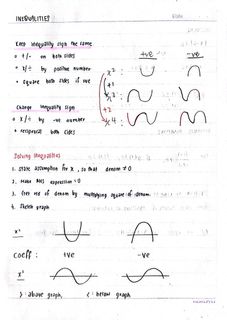 INEQUALITIES
Date:
Keep inequality sign the same
• +/- on both sides
• x/÷ by positive number
• square both sides if +ve
+ve -ve
x² :
x³ :
x⁴ :
+2
Change inequality sign
• x/÷ by -ve number
• reciprocal both sides
Solving Inequalities
1. State assumption for x, so that denom ≠ 0
2. Make RHS expression = 0
3. free ms of denom by multiplying square of denom.
4. Sketch graph
x²
coeff : +ve -ve
x³
> : above graph, < : below graph